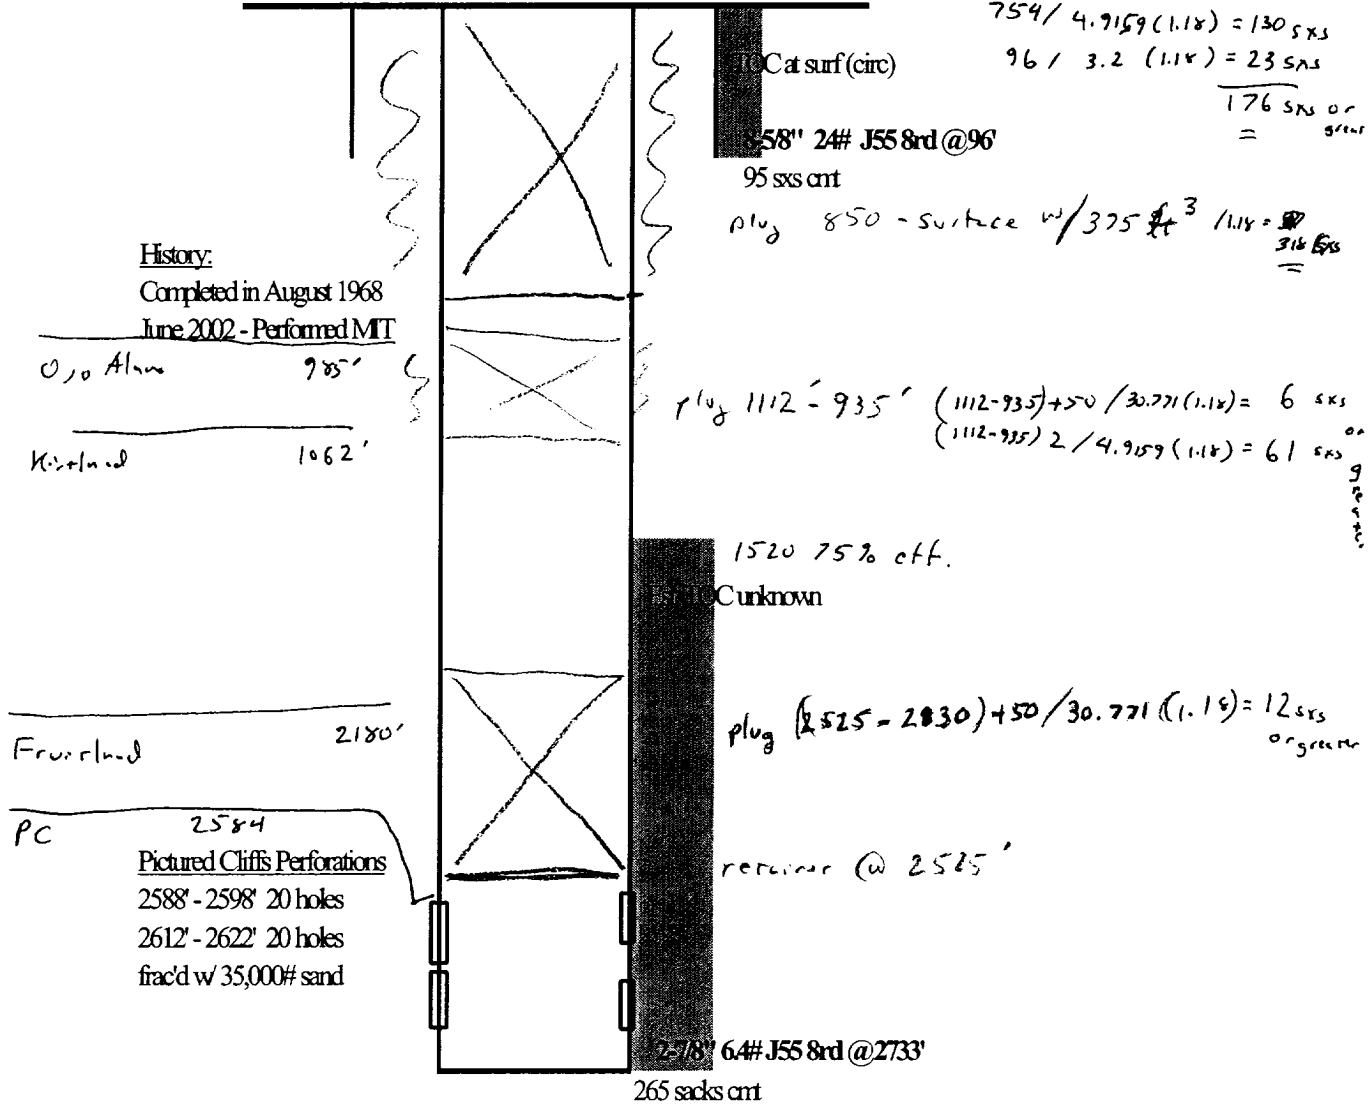 754 / 4.9159 (1.18) = 130 sxs
96 / 3.2 (1.18) = 23 sxs
176 sxs or
=
TOC at surf (circ)
8-5/8" 24# J55 8rd @ 96'
95 sxs cmt
plug 850 - surface w/ 375 ft 3 / 1.18 =
318 sxs
=
History:
Completed in August 1968
June 2002 - Performed MIT
Ojo Alamo 985'
Kirtland 1062'
plug 1112' - 935' (1112-935)+50 / 30.771 (1.18) = 6 sxs
or
(1112-935) 2 / 4.9159 (1.18) = 61 sxs
greater
1520 75% eff.
TOC unknown
Fruitland 2180'
plug (2525 - 2130) +50 / 30.771 (1.18) = 12 sxs
or greater
PC 2584
Pictured Cliffs Perforations
2588' - 2598' 20 holes
2612' - 2622' 20 holes
frac'd w/ 35,000# sand
retainer @ 2525'
2-7/8" 6.4# J55 8rd @ 2733'
265 sacks cmt